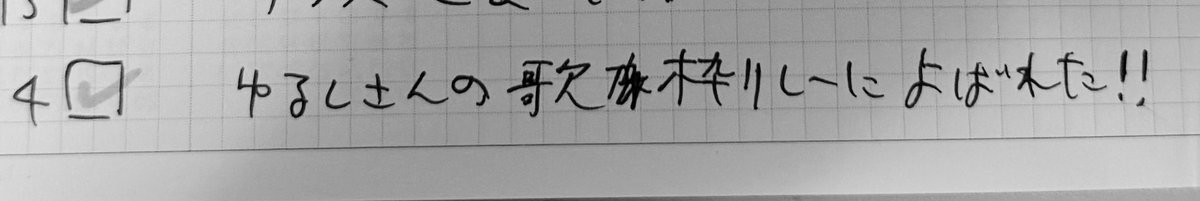 4 ゆるしさんの歌枠リレーによばれた!!